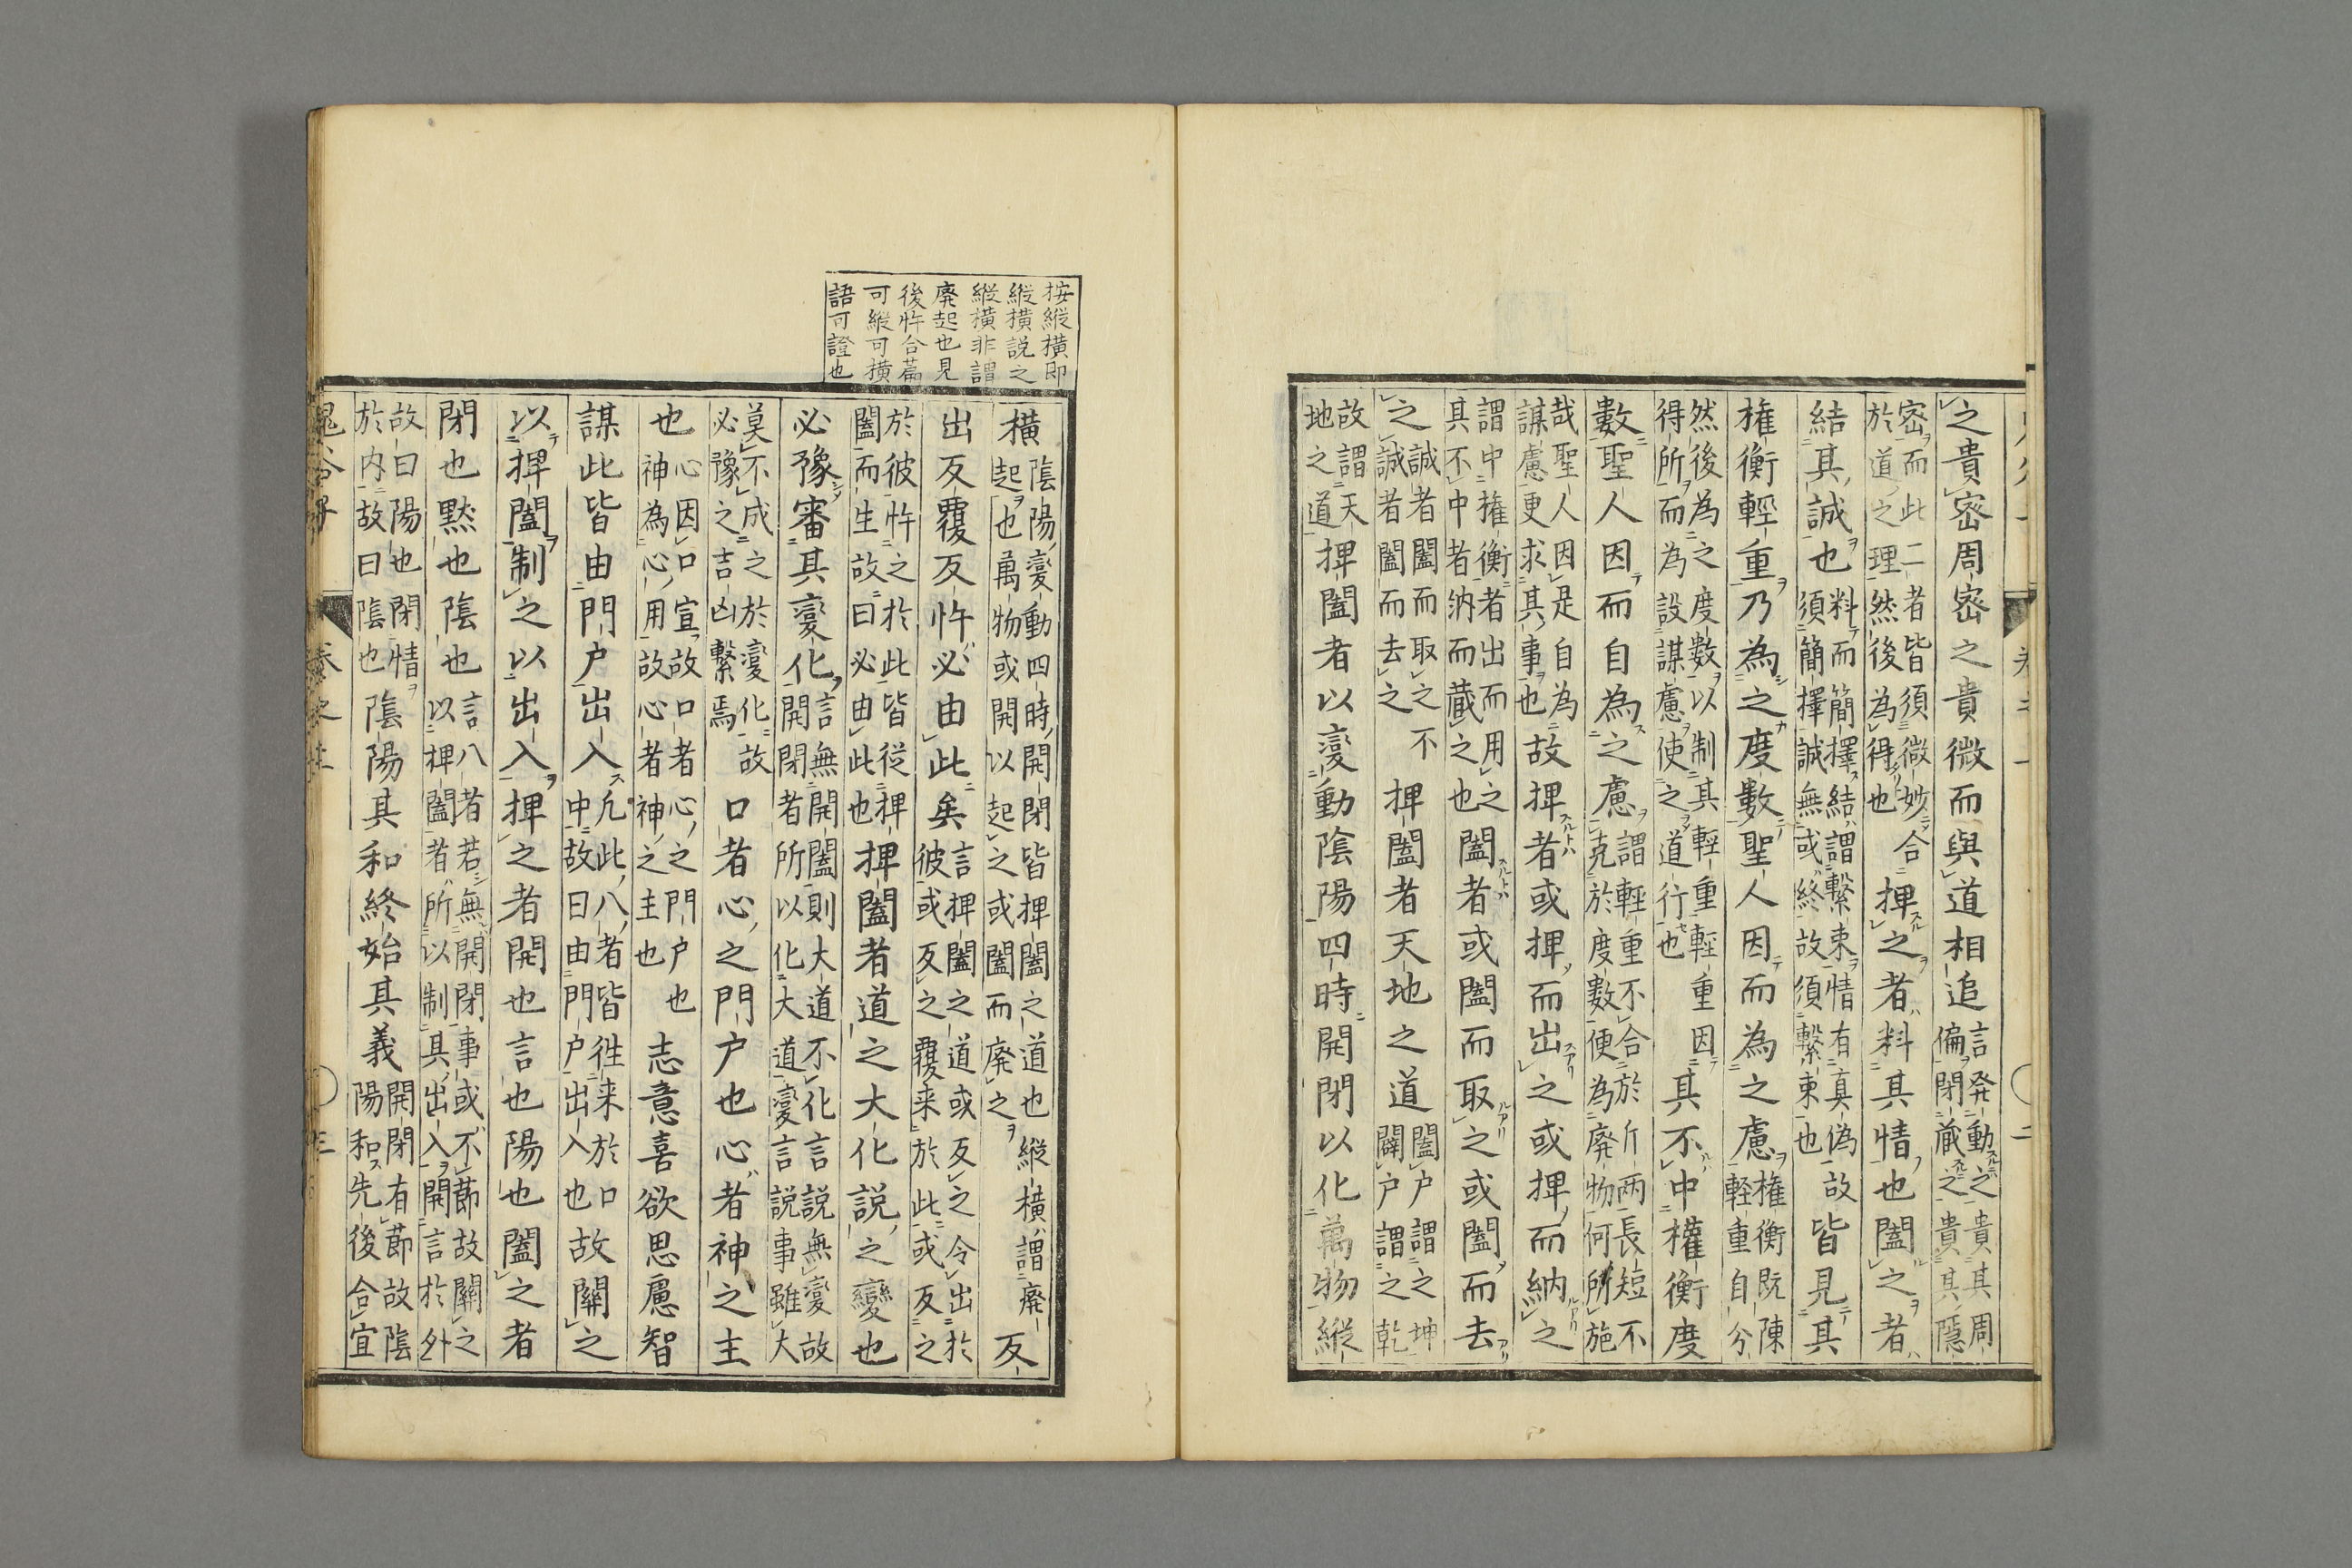 之貴密周密之貴微而與道相追言発動之貴其周
偏閉藏之貴其隱
密而此二者皆須微妙合
於道之理然後為得也捭之者料其情也闔之者
結其誠也料而簡擇結謂繫束情有真偽故
須簡擇誠無或終故須繫束也皆見其
権衡輕重乃為之度數聖人因而為之慮権衡既陳
輕重自分
然後為之度數以制其輕重輕重因
得所而為設謀慮使之道行也其不中權衡度
數聖人因而自為之慮謂輕重不合於斤両長短不
充於度數便為廃物何所施
哉聖人因是自為
謀慮更求其事也故捭者或捭而出之或捭而納之
謂中権衡者出而用之
其不中者納而藏之也闔者或闔而取之或闔而去
之誠者闔而取之不
誠者闔而去之捭闔者天地之道闔户謂之坤
闢户謂之乾
故謂天
地之道捭闔者以變動陰陽四時開閉以化萬物縱
按縱横即
縱横説之
縱横非謂
廃起也見
後忤合篇
可縱可横
語可證也
横陰陽變動四時開閉皆捭闔之道也縱横謂廃
起也萬物或開以起之或闔而廃之反
出反覆反忤必由此矣言捭闔之道或反之令出於
彼或反之覆来於此或反之
於彼忤之於此皆従捭
闔而生故曰必由此也捭闔者道之大化説之變也
必豫審其變化言無開闔則大道不化言説無變故
開閉者所以化大道變言説事雖大
莫不成之於變化故
必豫之吉凶繫焉口者心之門户也心者神之主
也心因口宣故口者心之門户也
神為心用故心者神之主也志意喜欲思慮智
謀此皆由門户出入凢此八者皆徃来於口
中故曰由門户出入也故關之
以捭闔制之以出入捭之者開也言也陽也闔之者
閉也黙也陰也言八者若無開閉事或不莭故關之
以捭闔者所以制其出入開言於外
故曰陽也閉情
於内故曰陰也陰陽其和終始其義開閉有莭故陰
陽和先後合宜
鬼谷子 卷之上 三